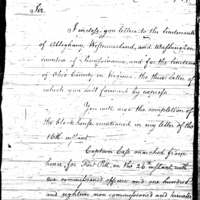 Sir
I enclose you letters to the lieutenants
of Alleghany, Westmoreland, and Washington
counties of Pennsylvania, and for the lieutenant
of Ohio County in Virginia, the three latter of
which you will forward by express
You will note the completion of
the block house mentioned in my letter of the
16th instant.
Captain Cass marched from
hence, for Fort Pitt, on the 20 instant, with
two commissioned officers and one hundred
and eighteen non commissioned and privates